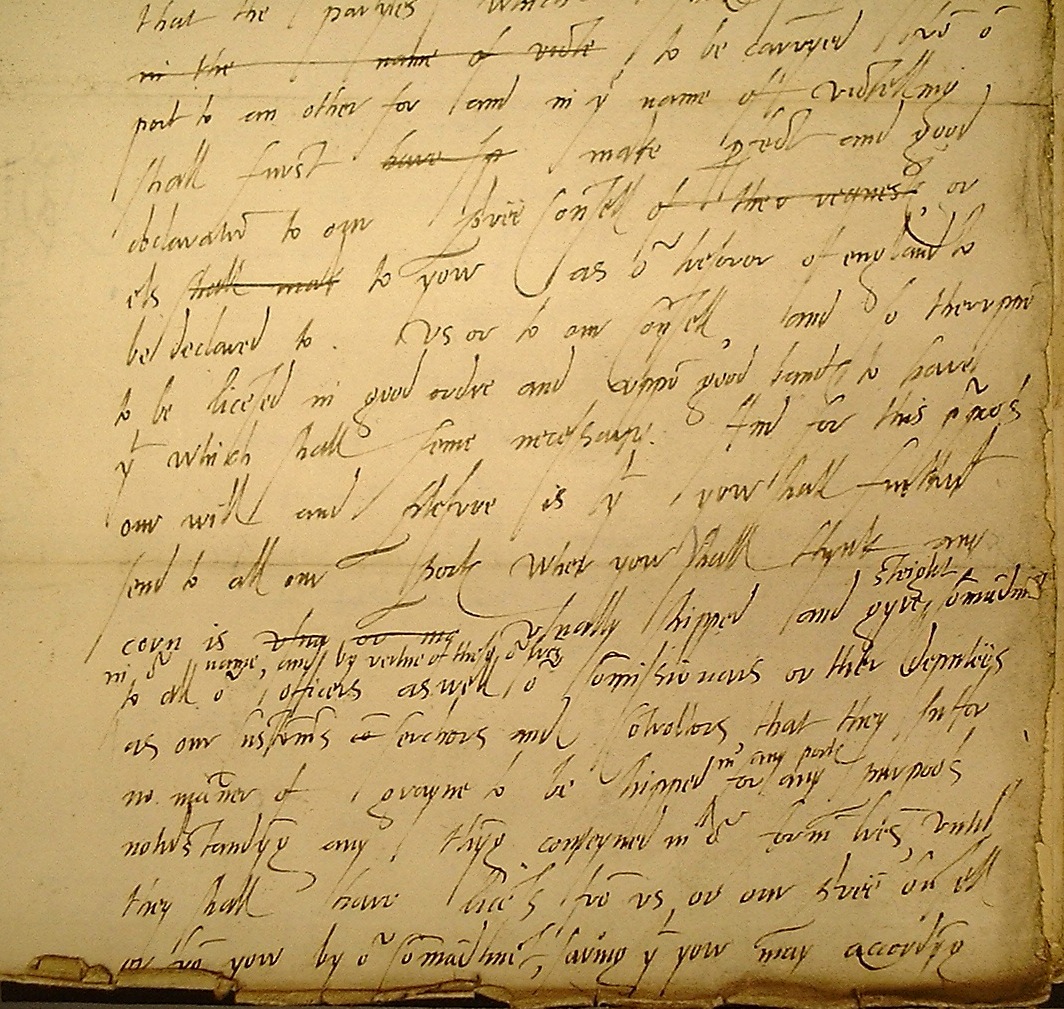 that the parties which
in the name of victe to be carryed frō ō
port to an other for and in yͭ name off victelling
shall furst have so make ꝑfect and good
declaratiō to our privie Consell of ther request or
els shall mak to yow as oʳ tresoror of england to
be declared to Vs or to our cōsell and so therupon
to be licēsed in good ordre and uppō good bands to have
yͭ which shall seme necessary. And for this
our will and desire is yͭ yow shall
send to all our Ports wher yow shall thynk any
corn is usually shipped and gyve straight cōmādmēt
in oʳ name, and by vertue of thes oʳ lres
to all oʳ officers aswell oʳ Comissionars or ther deputeis
as our custōms serchors and Cōtrollors that they suffer
no māner of grayne to be shipped in any porte for any purpoos
notwͭstandyng any thyng conteyned in oʳ form lres, until
they shall have licēs frō vs, or our privie cōsell
or frō yow by oʳ Cōmādmēt, saving yͭ yow may accordyng